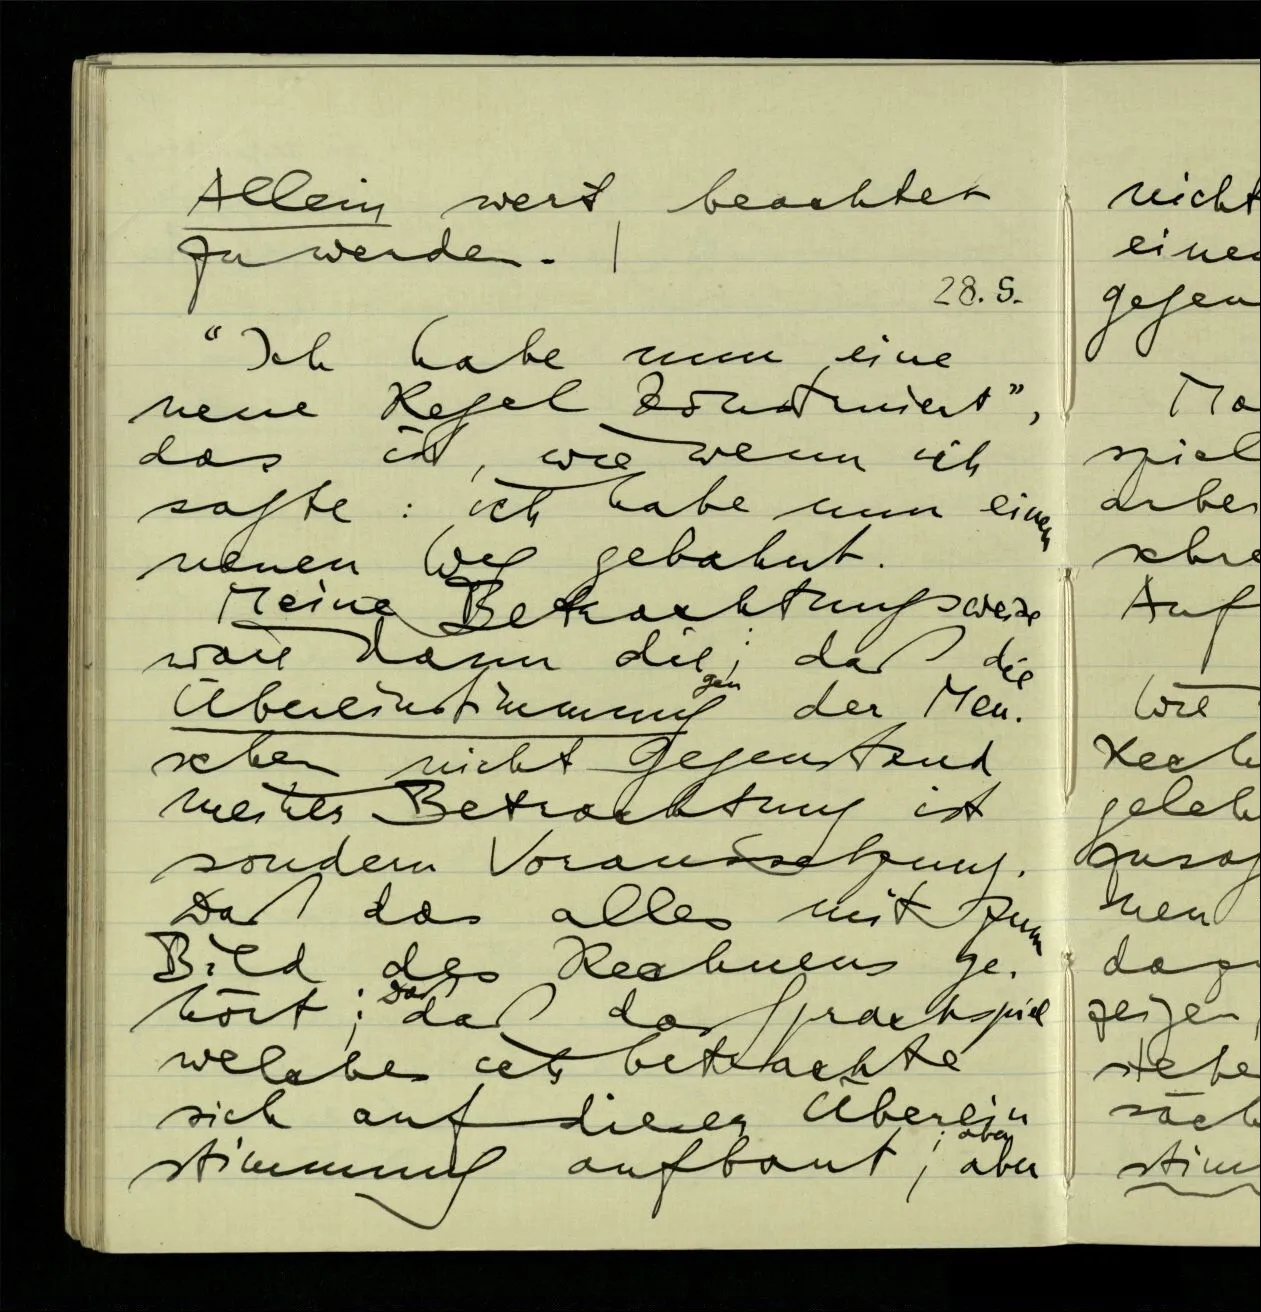 Allein wert beachtet
zu werden. |
28.5.
“Ich habe nun eine
neue Regel konstruiert”,
das ist, wie wenn ich
sagte: ich habe nun einen
neuen Weg gebahnt.
Meine Betrachtungsweise
wäre dann die; daß die
Übereinstimmung der Men-
gen
schen nicht Gegenstand
meiner Betrachtung ist
sondern Voraussetzung.
Daß das alles mit zum
Bild des Rechnens ge-
hört; daß das Sprachspiel
Daß
welches ich betrachte
sich auf dieser Überein
stimmung aufbaut; aber
aber
nicht
einen
gegen
Ma
spiel
arbei
schre
Auf
Wie
Rech
geleh
zusag
men
dazu
zeigen,
stehe
säch
stim